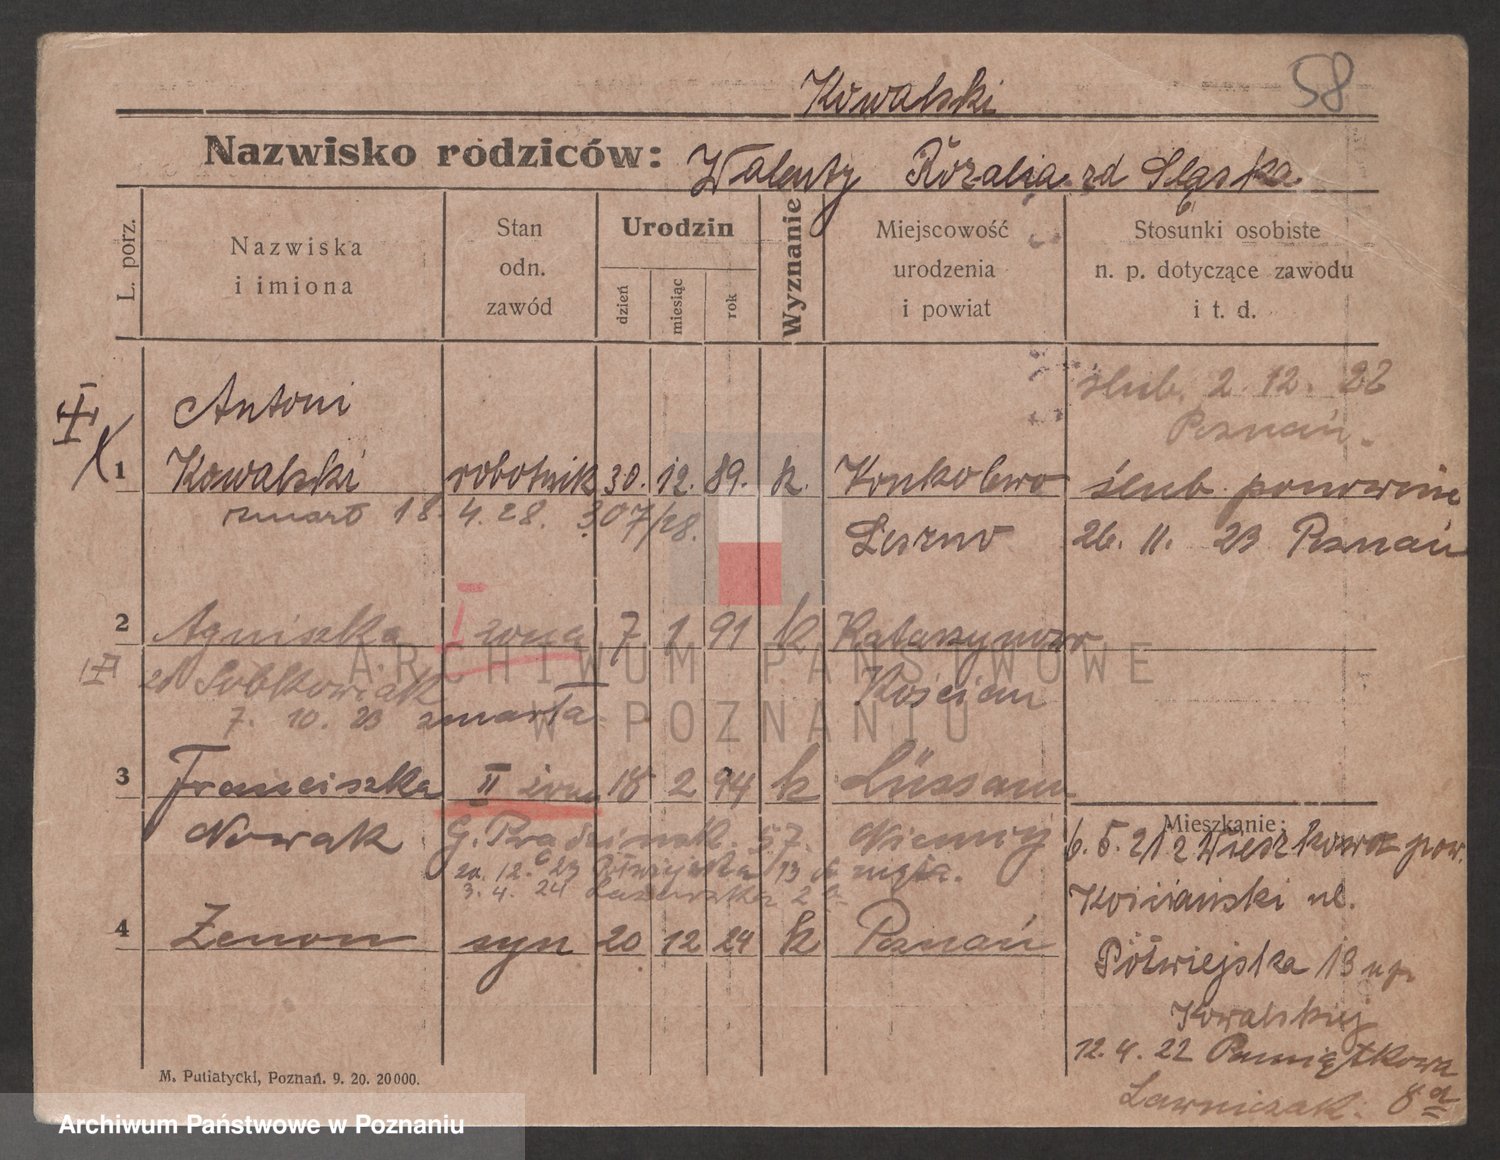 58
Kowalski
Nazwisko rodziców: Walenty Rozalia zd Sląska
L. porz.
Nazwiska
i imiona
Stan
odn.
zawód
Urodzin
dzień
miesiąc
rok
Wyznanie
Miejscowość
urodzenia
i powiat
Stosunki osobiste
n. p. dotyczące zawodu
i t. d.
ślub. 2. 12. 22
Poznań.
Antoni
1 Kowalski robotnik 30. 12. 89. k. Konkolewo ślub ponownie
zmarł 18. 4. 28. 307/28. Leszno 26. 11. 23 Poznań
2 Agniszka I żona 7 1 91 k
zd Sobkowiak Kościan
7. 10. 23 zmarła
3 Franciszka II żona 18 2 94 k Lüssam
Nowak Niemcy
57.
zd. 12. 23 Półwiejska 13
3. 4. 24 2
4 Zenon syn 20 12 24 k Poznań
Mieszkanie:
6. 5. 21 z Wieszkowa pow.
Kościański ul.
Półwiejska 13 u p.
Kowalskiej
12. 4. 22 Pamiątkowa
Ławniczak. 8
M. Putiatycki, Poznań. 9. 20. 20000.
ARCHIWUM PAŃSTWOWE
W POZNANIU
Archiwum Państwowe w Poznaniu